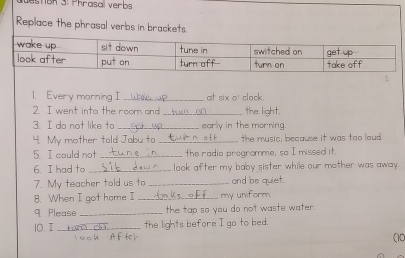 Question 3: Phrasal verbs
Replace the phrasal verbs in brackets.
wake up sit down tune in switched on get up
look after put on turn off turn on take off
1. Every morning I wake up at six o' clock.
2. I went into the room and turn on the light.
3. I do not like to get up early in the morning.
4. My mother told Jabu to turn off the music, because it was too loud.
5. I could not tune in the radio programme, so I missed it.
6. I had to sit down look after my baby sister while our mother was away.
7. My teacher told us to and be quiet.
8. When I got home I take off my uniform.
9. Please the tap so you do not waste water.
10. I turn off the lights before I go to bed.
look After
(10